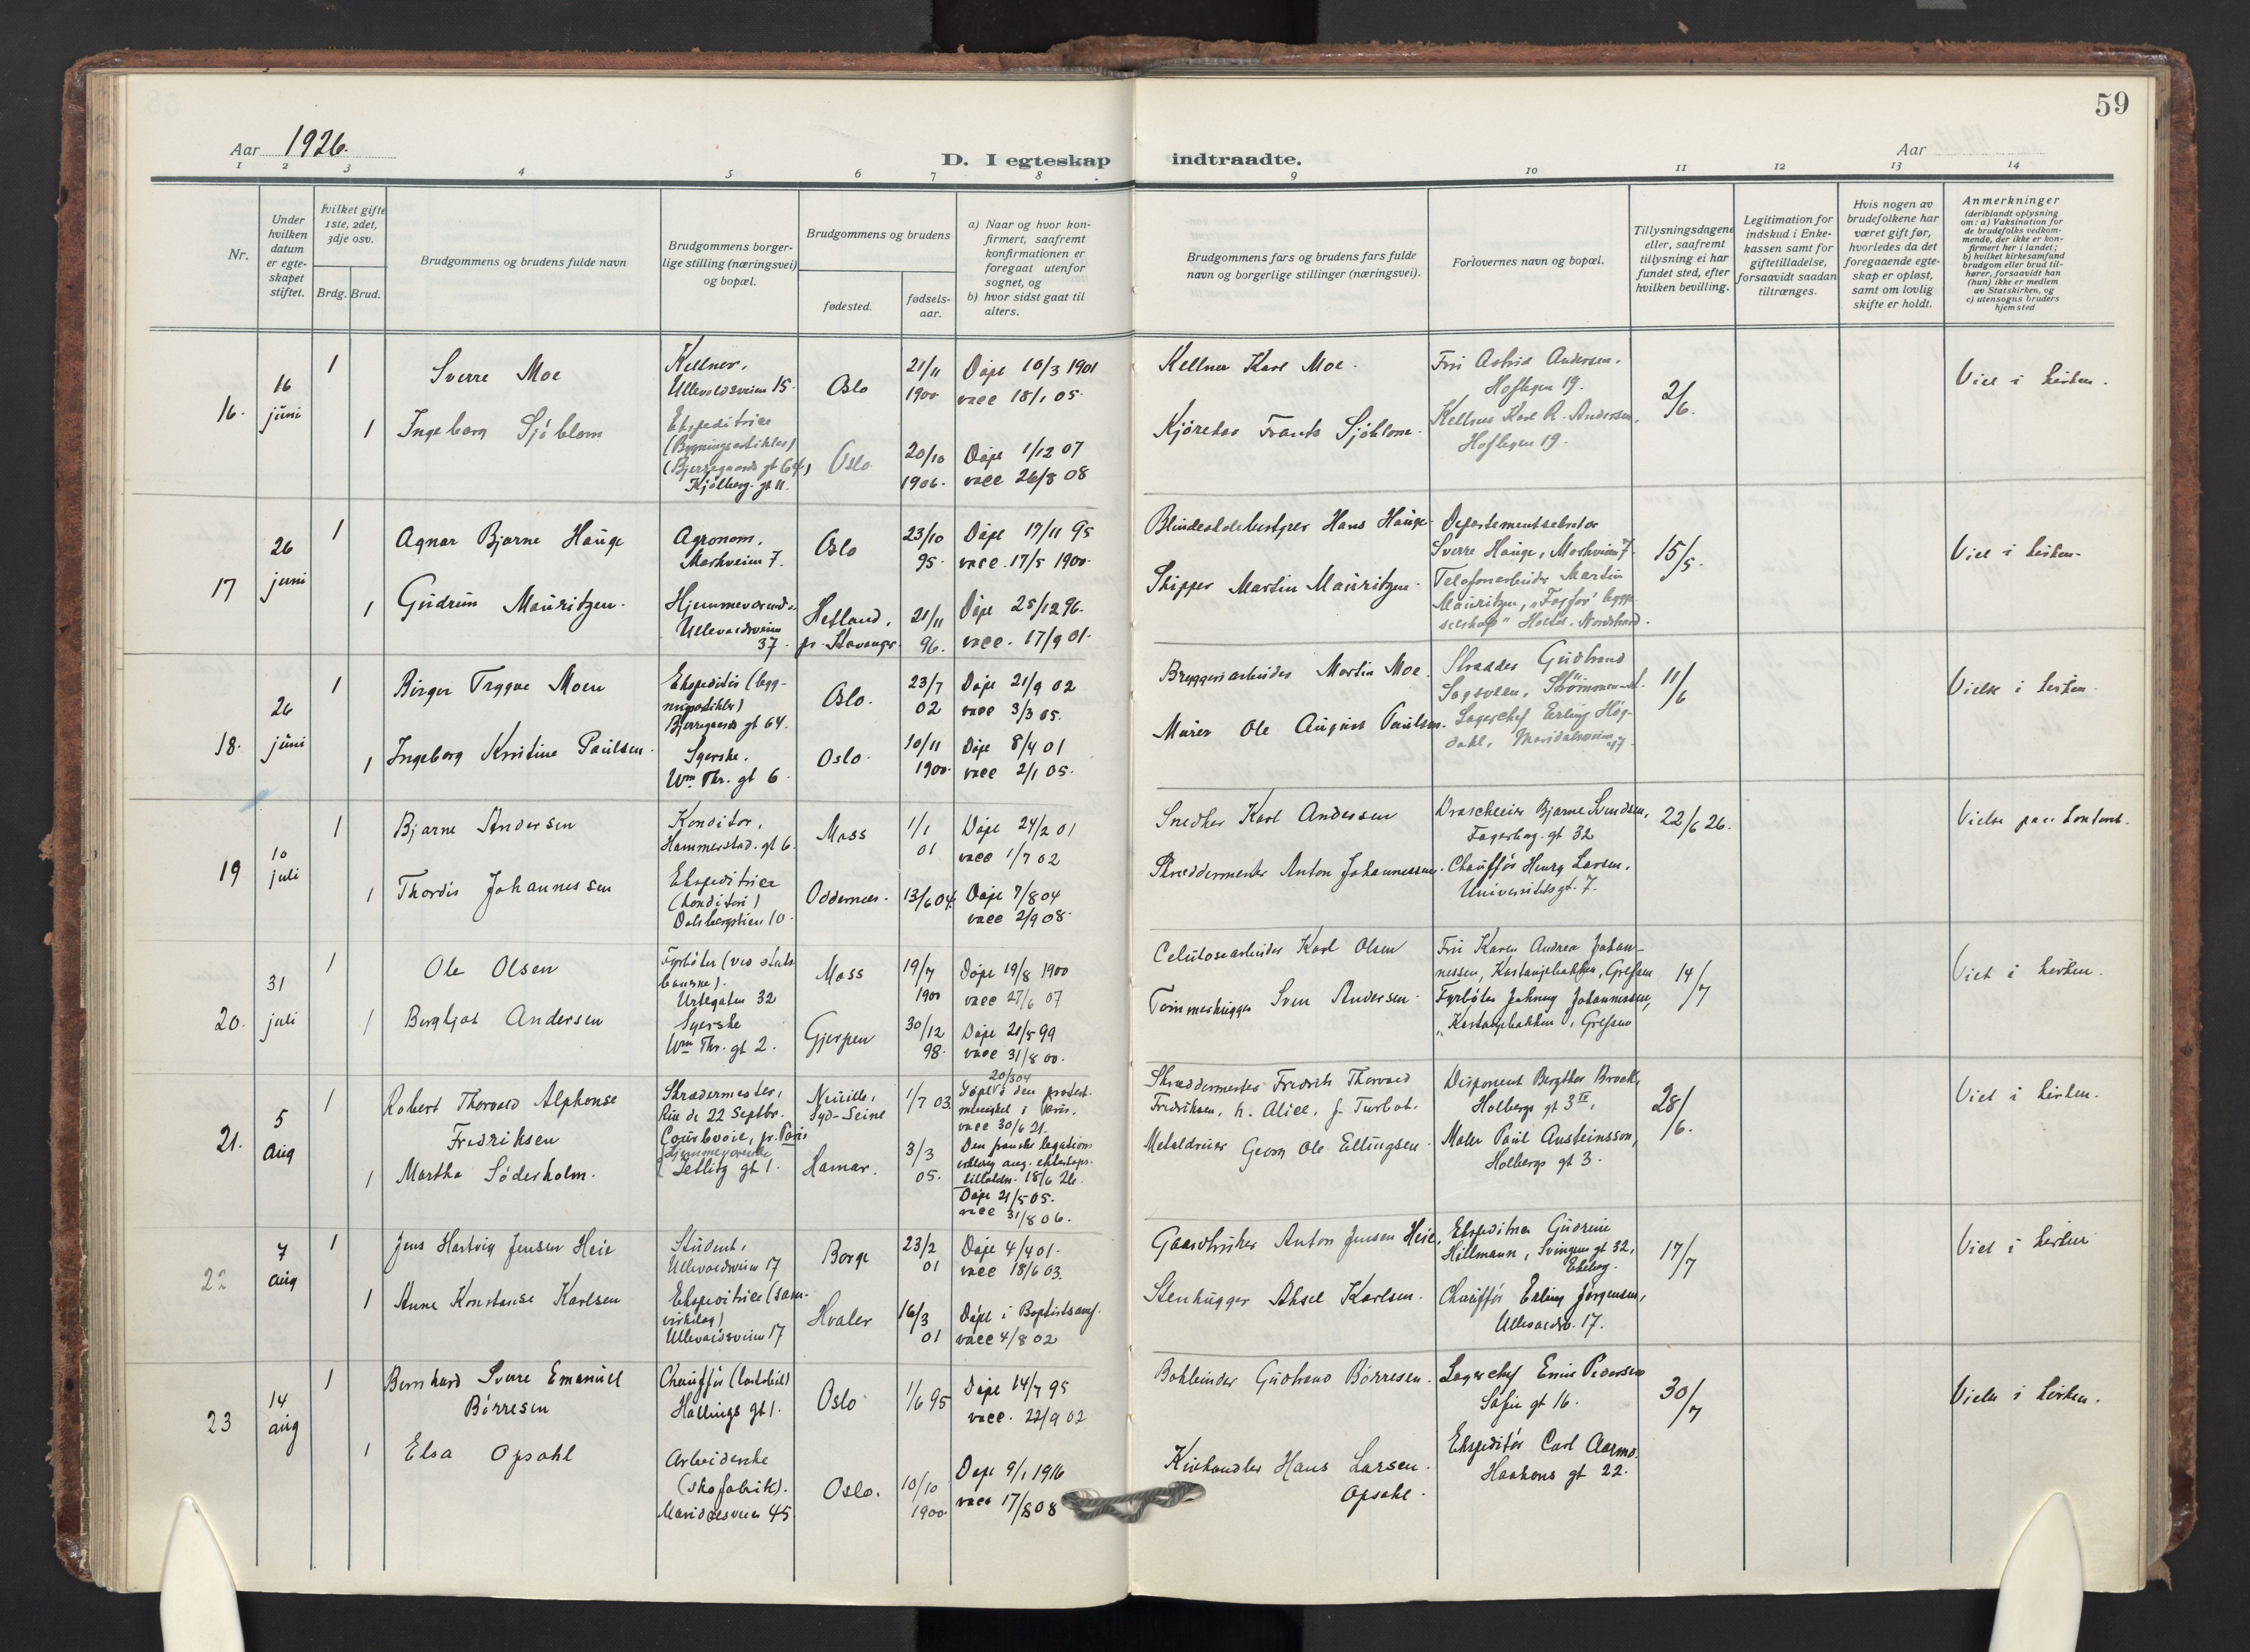 59
Aar 1926.
D. I egteskap indtraadte.
Aar
1 2 3 4 5 6 7 8 9 10 11 12 13 14
Nr.
Under hvilken datum er egteskapet stiftet.
Hvilket gifte 1ste, 2det, 3dje osv.
Brdg. Brud.
Brudgommens og brudens fulde navn
Brudgommens borgerlige stilling (næringsvei) og bopæl.
Brudgommens og brudens
fødested.
fødselsaar.
a) Naar og hvor konfirmert, saafremt konfirmationen er foregaat utenfor sognet, og
b) hvor sidst gaat til alters.
Brudgommens fars og brudens fars fulde navn og borgerlige stillinger (næringsvei).
Forlovernes navn og bopæl.
Tillysningsdagene eller, saafremt tillysning ei har fundet sted, efter hvilken bevilling.
Legitimation for indskud i Enkekassen samt for giftetilladelse, forsaavidt saadan tiltrænges.
Hvis nogen av brudefolkene har været gift før, hvorledes da det foregaaende egteskap er opløst, samt om lovlig skifte er holdt.
Anmerkninger
(deriblandt oplysning om: a) Vaksination for de brudefolks vedkommende, der ikke er konfirmert her i landet; b) hvilket kirkesamfund brudgom eller brud tilhører, forsaavidt han (hun) ikke er medlem av Statskirken, og c) utensogns bruders hjemsted
16. 16 juni
1 Sverre Moe
Kellner, Ullevoldsveien 15.
Oslo
21/11 1900
Døpt 10/3 1901
vacc 18/1 05.
Kellner Karl Moe.
Fru Astrid Andersen.
Hoflegen 19.
2/6.
Viet i kirken.
1 Ingeborg Sjöblom
Ekspeditrice
Oslo
20/10 1906.
Døpt 1/12 07
vacc 26/8 08
Kjøretøo Frants Sjöblom.
Kellner Karl R. Andersen,
Hoflegen 19.
17 26 juni
1 Agnar Bjarne Hauge
Agronom,
Markveien 7.
Oslo
23/10 95.
Døpt 17/11 95
vacc. 17/5 1900.
Hans Hauge.
Departementsekretær
Sverre Hauge, Markveien 7.
15/5.
Viet i kirken.
1 Gudrun Mauritzen.
Hjemmeværende
Ullevoldsveien 37.
Hetland, pr. Stavanger.
21/11 96.
Døpt 25/12 96.
vacc. 17/9 01.
Skipper Martin Mauritzen.
Telefonarbeider Martin
Mauritzen,
Nordstrand.
18. 26 juni
1 Birger Trygve Moen
Bjerregaards gt 64.
Oslo.
23/7 02
Døpt 21/9 02
vacc 3/3 05.
Bryggeriarbeider Martin Moe.
Skrædder Gudbrand
11/6
Vielse i kirken.
1 Ingeborg Kristine Paulsen.
Syerske.
Wm. Thr. gt 6.
Oslo.
10/11 1900.
Døpt 8/4 01
vacc 2/1 05.
Murer Ole August Paulsen.
Lagerchef Erling Høgdahl, Maridalsveien
19 10 juli
1 Bjarne Andersen
Konditor,
Hammerstad. gt 6.
Moss
1/1 01
Døpt 24/2 01
vacc 1/7 02
Snedker Karl Andersen
Bjarne Svendsen,
Fagerborg. gt 32
22/6 26.
Vielse paa kontoret.
1 Thordis Johannessen
Ekspeditrice
(konditori)
Dalsbergstien 10.
Oddernes.
13/6 04.
Døpt 7/8 04
vacc 2/9 08.
Skreddermester Anton Johannessen.
Chauffør Henry Larsen,
Universitetsgt. 7.
20. 31 juli
1 Ole Olsen
Fyrbøter (ved statsbanerne).
Urtegaten 32
Moss
19/7 1900
Døpt 19/8 1900
vacc 27/6 07
Celulosearbeider Karl Olsen
Fru Karen Andrea Johannessen, Kastanjebakken, Grefsen
14/7
Viet i kirken.
1 Bergljot Andersen
Syerske
Wm Thr. gt 2.
Gjerpen
30/12 98.
Døpt 21/5 99
vacc 31/8 00.
Tømmerhugger Sven Andersen.
Fyrbøter Johnny Johannessen,
"Kastanjebakken", Grefsen
21. 5 Aug
1 Robert Thorvald Alphonse
Fredriksen
Skrædermester,
Rue de 22 Septbr.
Courbevoie, pr. Paris
Neuille,
Syd-Seine
1/7 03.
20/3 04
Døpt i den protest. menighet i Paris.
vacc 30/6 21.
Skræddermester Fredrik Thorvald
Fredriksen, h. Alice, f. Turbot.
Disponent Bergthor Brock,
Holbergs gt 3 IV,
28/6.
Viet i kirken.
1 Martha Söderholm.
Hjemmeværende
Tetlitz gt 1.
Hamar.
3/3 05.
Den franske legations
18/6 26.
Døpt 21/5 05.
vacc 31/8 06.
Metaldreier Georg Ole Ellingsen.
Maler Paul Austeinsson,
Holbergs gt 3.
22 7 aug
1 Jens Hartvig Jensen Heie
Student,
Ullevoldsveien 17
Borge
23/2 01
Døpt 4/4 01.
vacc 18/6 03.
Gaardbruker Anton Jensen Heie.
Ekspeditrice Gudrun
Hillmann, Svingens gt 32,
Ekeberg.
17/7
Viet i kirken
1 Anne Konstanse Karlsen
Ekspeditrice (samvirkelag)
Ullevoldsveien 17
Hvaler
16/3 01
Døpt i Baptistsamf.
vacc 4/8 02
Stenhugger Aksel Karlsen.
Chauffør Erling Jørgensen,
Ullevoldsv. 17.
23 14 aug
1 Bernhard Sverre Emanuel
Børresen
Chauffør (lastebil)
Hallings gt 1.
Oslo
1/6 95
Døpt 14/7 95
vacc. 22/9 02
Bokbinder Gudbrand Børresen.
Lagerchef Einar Pedersen
Sofie gt 16.
30/7
Vielse i kirken.
1 Elsa Opsahl
Arbeiderske
(skofabrik).
Maridalsveien 45
Oslo.
10/10 1900.
Døpt 9/1 1916
vacc 17/8 08
Hans Larsen
Opsahl.
Ekspeditør Carl Aarmo.
Haakons gt 22.